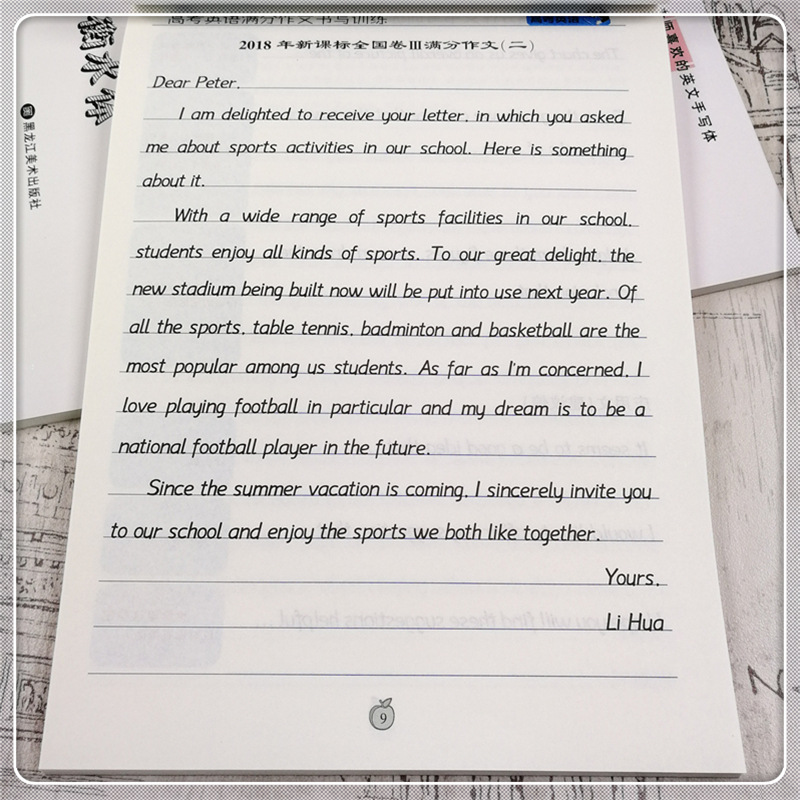 高考英语满分作文书写训练
2018年新课标全国卷Ⅲ满分作文(二)
Dear Peter,
I am delighted to receive your letter, in which you asked
me about sports activities in our school. Here is something
about it.
With a wide range of sports facilities in our school,
students enjoy all kinds of sports. To our great delight, the
new stadium being built now will be put into use next year. Of
all the sports, table tennis, badminton and basketball are the
most popular among us students. As far as I'm concerned, I
love playing football in particular and my dream is to be a
national football player in the future.
Since the summer vacation is coming, I sincerely invite you
to our school and enjoy the sports we both like together.
Yours,
Li Hua
9
黑龙江美术出版社
喜欢的英文手写体